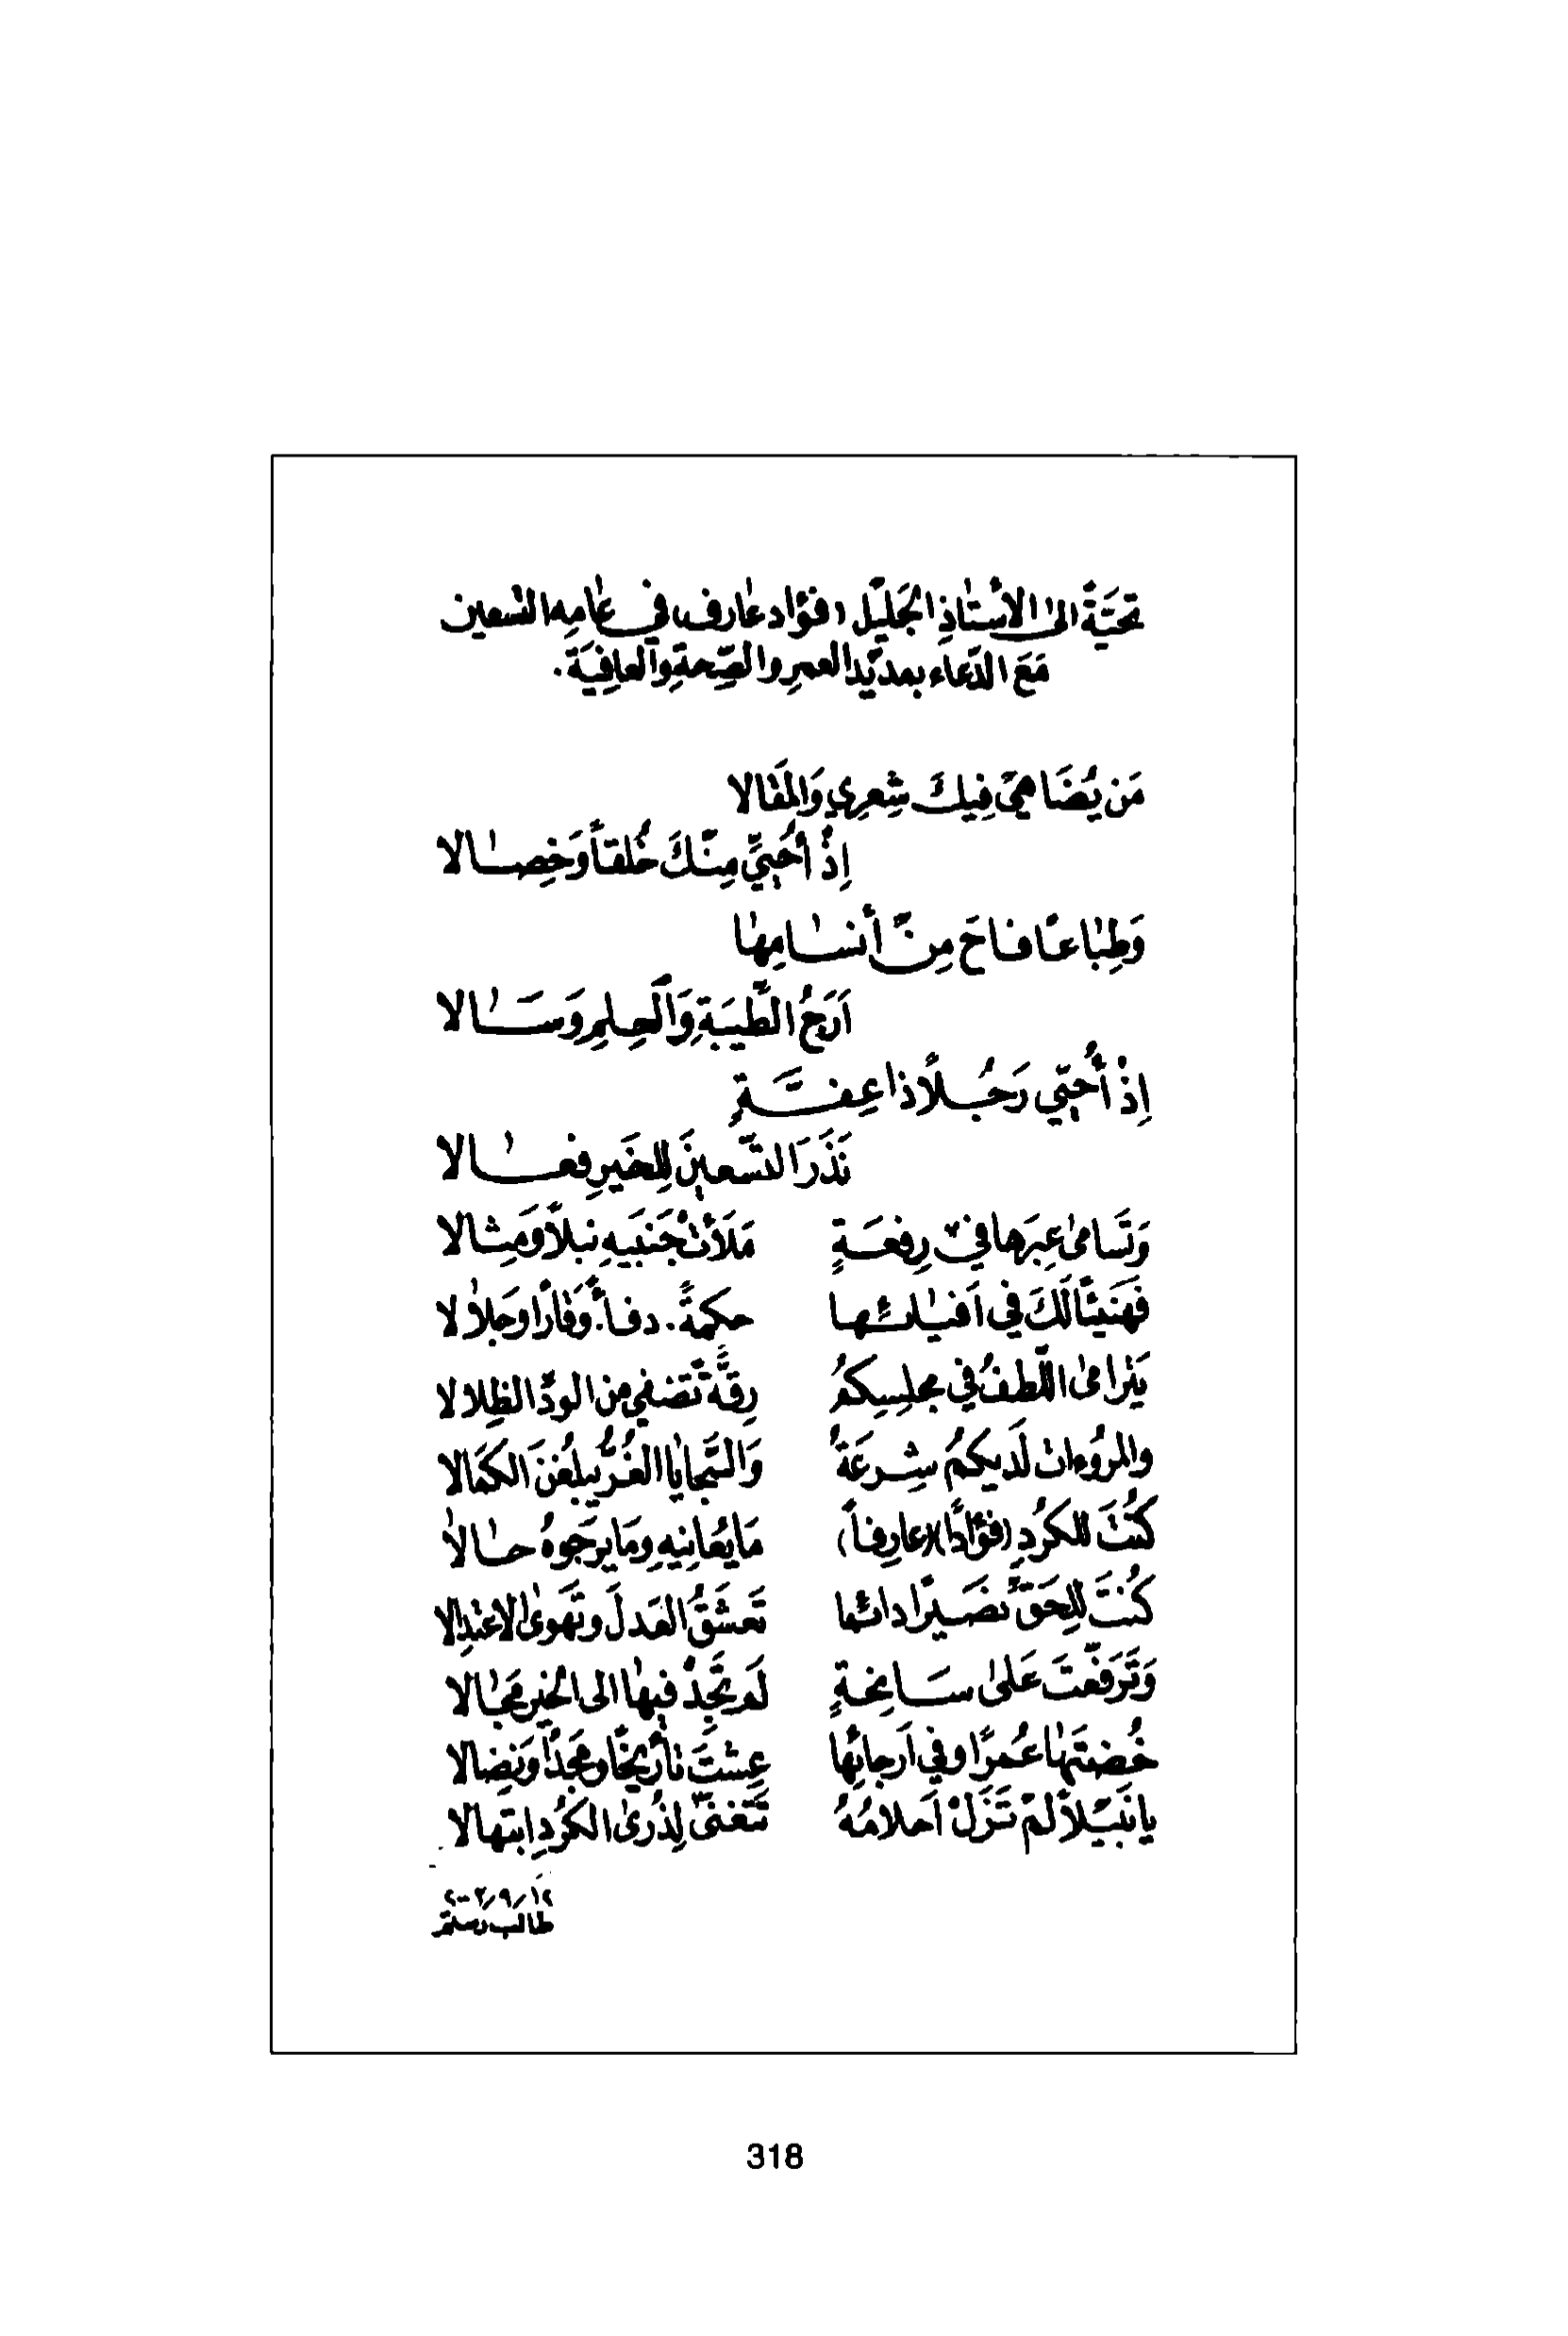 تحيَّةً الى الأستاذِ الجَليْل (فؤاد عارف) في عامِه التسعين
مَعَ الدّعاء بمديْد العمرِ والصِّحةِ والعافِيَة.
مَن يُضَاهيْ فِيكَ شِعرِي وَالمقَالا
إذْ أُحَيِّيْ مِنْكَ خُلقاً وَخِصالا
وَطِبَاعًا فاحَ مِنْ أنسامِها
أرَجُ الطِّيبَةِ وَالحِلمِ وَسَالا
إذْ أُحَيّي رَجُلاً ذا عِفَّةٍ
نَذَرَ التّسعينَ لِلخَيرِ فِعالا
وَتَسامىٰ عِبرَها فيْ رِفعَةٍ مَلَأتْ جَنبَيهِ نبلاً وَمِثالا
فَهَنيئًا لَكَ في اَفيائها حكمةً. دفأً. وَقارًا وجَلالا
يَترامىٰ اللّطفُ في مجلِسِكمُ رِقَّةً تُضفي من الودِّ الظِلالا
والمرُوءات لَديكمُ شِرعَةٌ وَالسَّجايا الغُرُّ يبلُغنَ الكمَالا
كُنتَ للكُردِ (فؤادًا) (عارِفاً) مَا يُعانِيهِ ومَا يرجَوهُ حالا
كُنتَ لِلحَقِّ نصَيرًا دائما تَعشَقُ العَدلَ وتَهوىٰ الاعتدالا
وَتَرَفّعتَ عَلىٰ سَانحةٍ لَم تَجِدْ فيها الى الخيرِ مَجالا
خُضتَها عُمرًا وفي اَرجائِها عِشتَ تأريخًا ومَجدًا وَنِضالا
يا نَبيلاً لمْ تَزَلْ اَحلامُهُ تَتَغنىّٰ لِذُرىٰ الكُردِ ابتهالا
٢٠٠٢/٩/١٢
طالب رستم
318